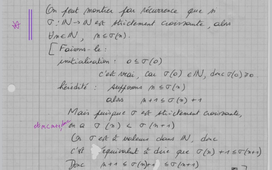 On peut montrer par récurrence que si
σ : ℕ → ℕ est strictement croissante, alors
* ∀n∈ℕ, n ≤ σ(n)
[ Faisons-le :
initialisation : 0 ≤ σ(0)
c'est vrai, car σ(0) ∈ ℕ, donc σ(0) ≥ 0
hérédité : supposons n ≤ σ(n)
alors n+1 ≤ σ(n)+1
Mais puisque σ est strictement croissante,
on a σ(n) < σ(n+1)
On σ est à valeurs dans ℕ, donc
c'est équivalent à dire que σ(n)+1 ≤ σ(n+1)
Donc n+1 ≤ σ(n)+1 ≤ σ(n+1)